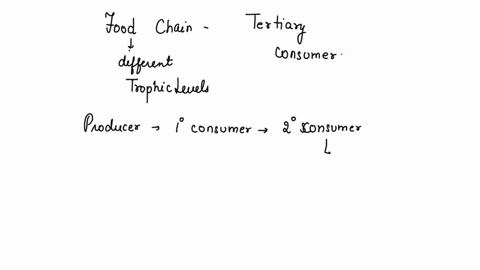 Food Chain - Tertiary
consumer.
↓
different
Trophic Levels
Producer → 1° consumer → 2° consumer